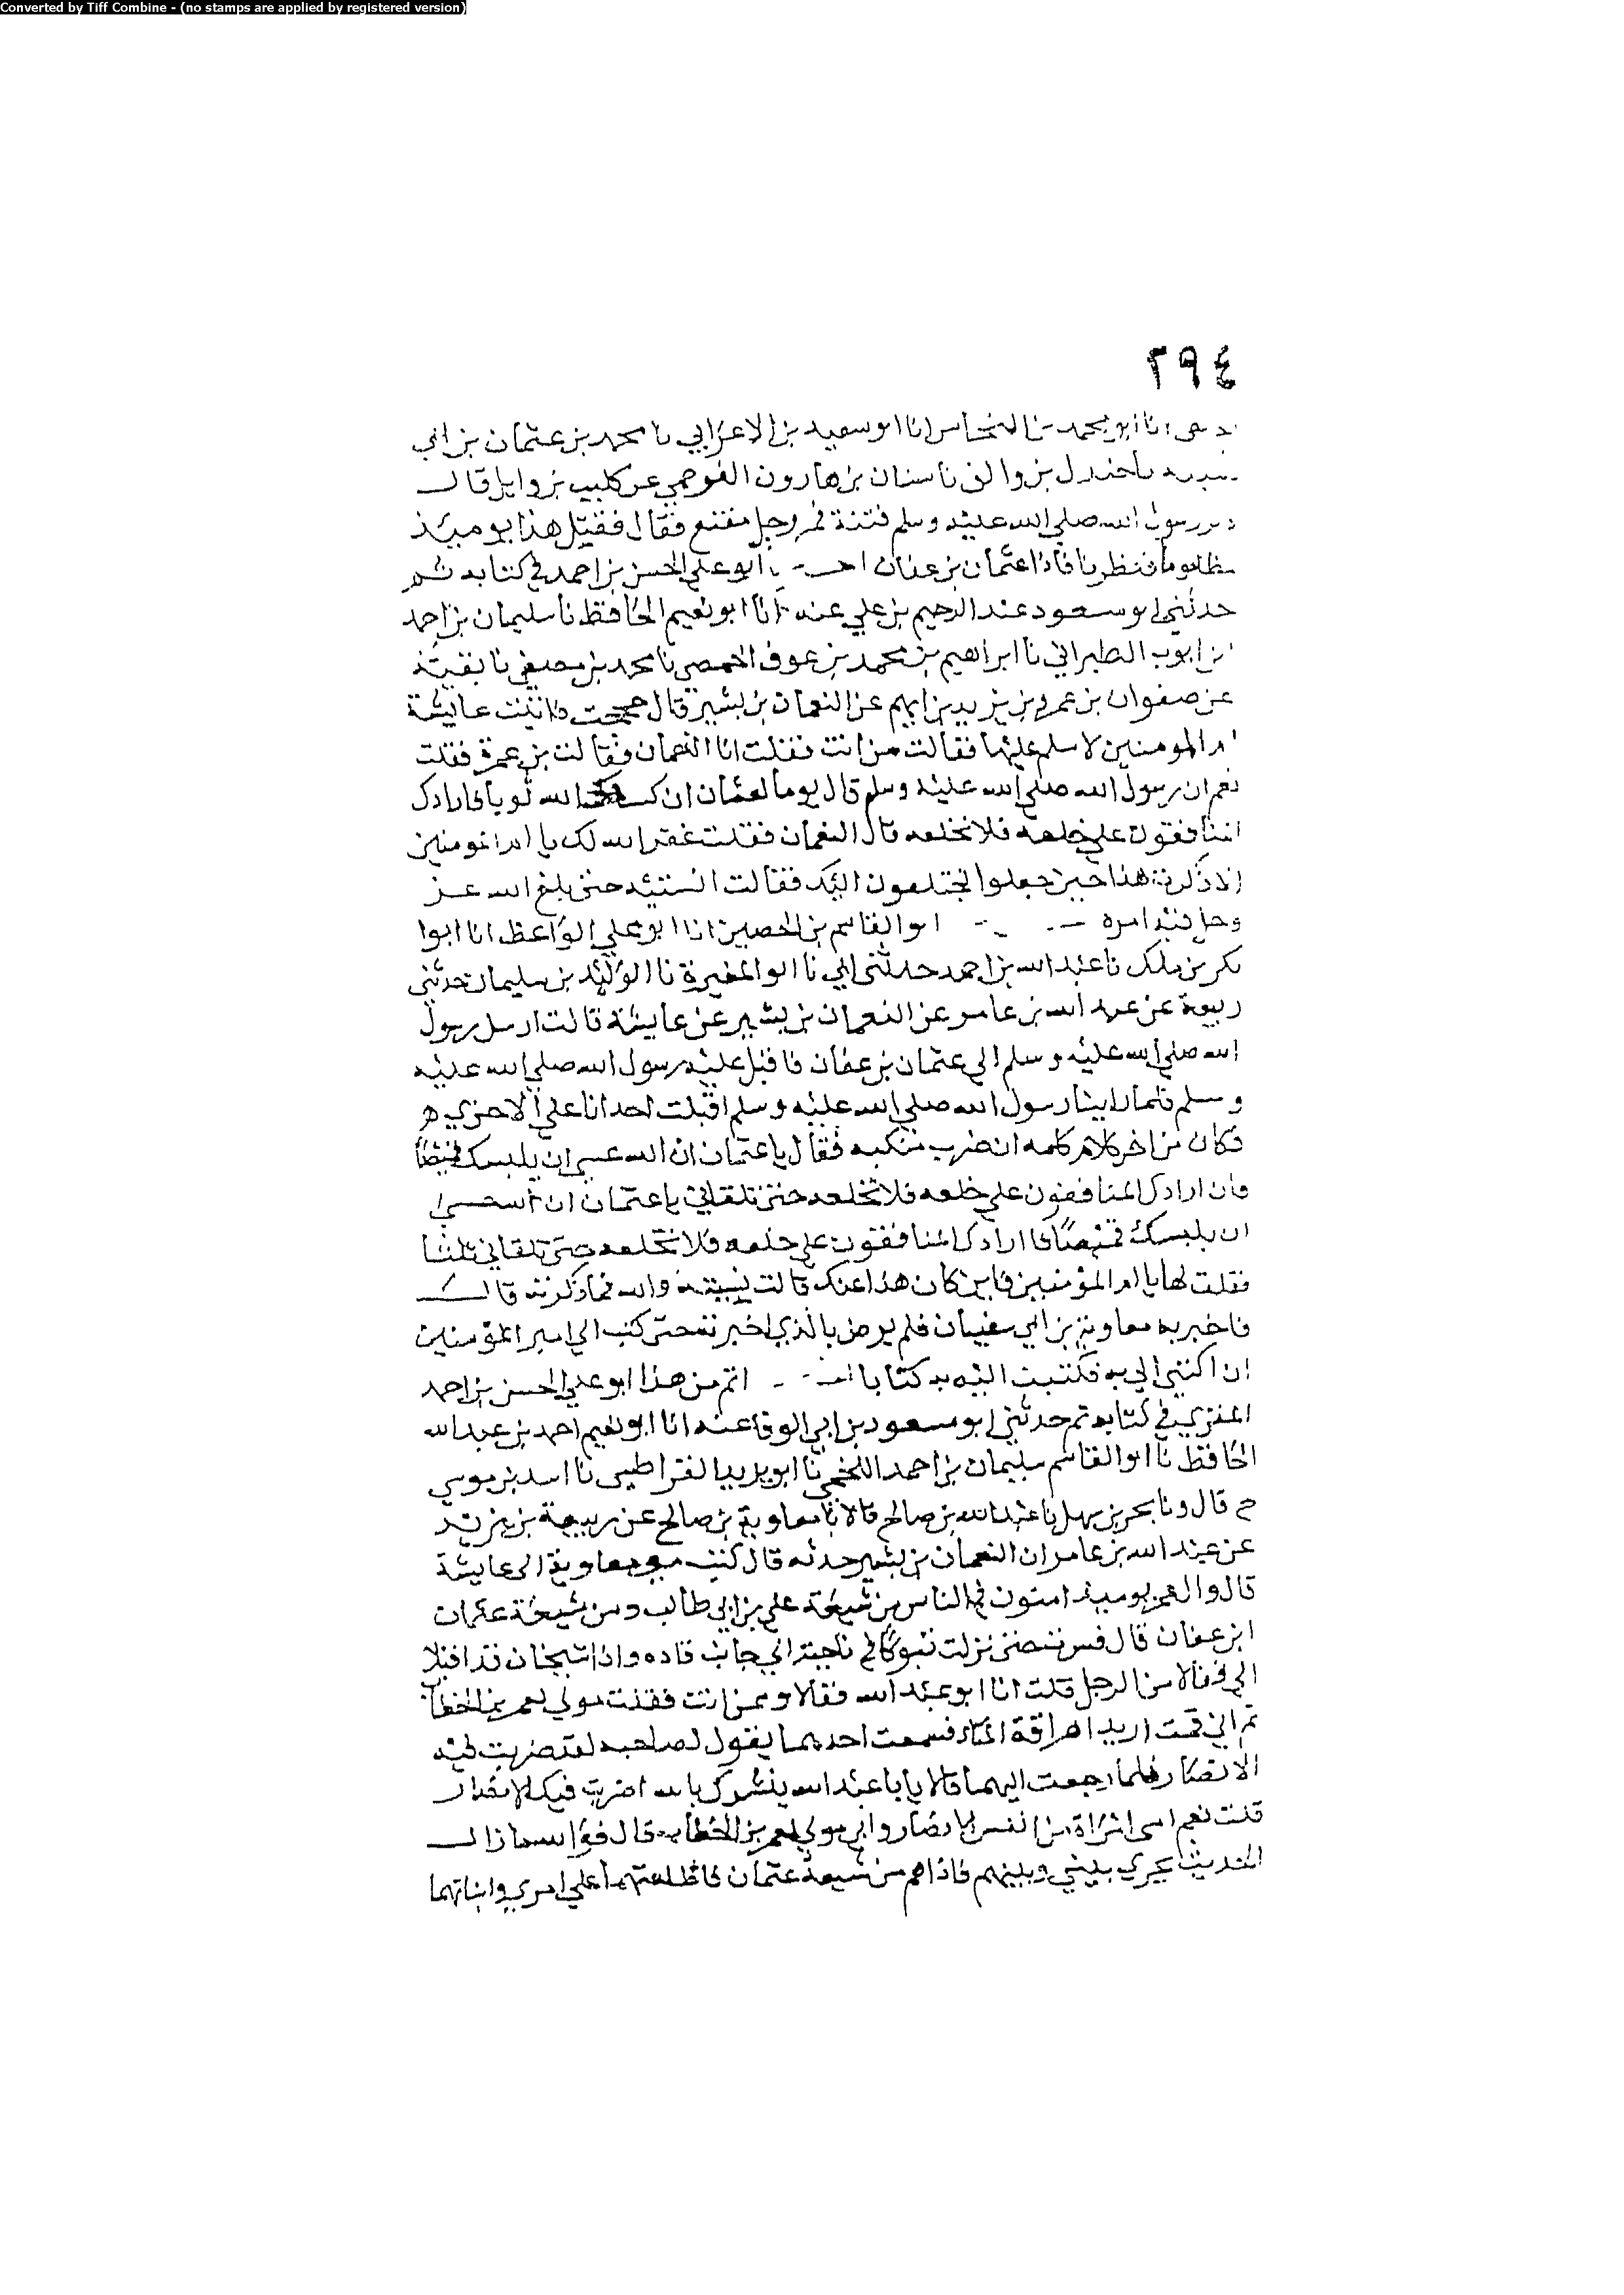 Converted by Tiff Combine - (no stamps are applied by registered version)
٢٩٤
انا ابو محمد بن النحاس انا ابو سعيد بن الاعرابي نا محمد بن عثمان بن ابي
نا جندل بن والق نا سنان بن هارون البرجمي عن كليب بن وايل قال
رسول الله صلي الله عليه وسلم فتنة فمر رجل مقنع فقال فقيل هذا يوميذ
مظلوما فنظرنا فاذا عثمان بن عفان ابو علي الحسن بن احمد في كتابه ثم
حدثني ابو مسعود عبد الرحيم بن علي عنه انا ابو نعيم الحافظ نا سليمان بن احمد
بن ايوب الطبراني نا ابراهيم بن محمد بن عوف الحمصي نا محمد بن مصفي نا بقية
عن صفوان بن عمرو بن يزيد بن ايهم عن النعمان بن بشير قال حججت فاتيت عايشة
ام المومنين لاسلم عليها فقالت من انت فقلت انا النعمان فقالت بن عمرة فقلت
نعم ان رسول الله صلي الله عليه وسلم قال يوما لعثمان ان كساك الله ثوبا فارادك
المنافقون علي خلعه فلا تخلعه قال النعمان فقلت غفر الله لك يا ام المومنين
الا ذكرت هذا حين جعلوا يختلفون اليك فقالت انسيته حتى بلغ الله عز
وجل فيه امره ابو القاسم بن الحصين انا ابو علي الواعظ انا ابوا
بكر بن ملك نا عبد الله بن احمد حدثني ابي نا ابو المغيرة نا الوليد بن سليمان حدثني
ربيعة عن عبد الله بن عامر عن النعمان بن بشير عن عايشة قالت ارسل رسول
الله صلي الله عليه وسلم الي عثمان بن عفان فاقبل عليه رسول الله صلي الله عليه
وسلم فلما راينا رسول الله صلي الله عليه وسلم اقبلت احدانا علي الاخري
فكان من اخر كلام كلمه ان ضرب منكبه فقال يا عثمان ان الله عسي ان يلبسك قميصا
فان ارادك المنافقون علي خلعه فلا تخلعه حتى تلقاني يا عثمان ان الله عسى
ان يلبسك قميصا فان ارادك المنافقون علي خلعه فلا تخلعه حتى تلقاني ثلثا
فقلت لها يا ام المؤمنين فاين كان هذا عنك قالت نسيته والله فما ذكرته قال
فاخبر به معاوية بن ابي سفيان فلم يرض بالذي اخبرته حتى كتب الي امير المؤمنين
ان اكتبي الي به فكتبت اليه به كتابا اتم من هذا ابو علي الحسن بن احمد
المقري في كتابه ثم حدثني ابو مسعود بن ابي الوفا عنه انا ابو نعيم احمد بن عبد الله
الحافظ نا ابو القاسم سليمان بن احمد اللخمي نا ابو يزيد القراطيسي نا اسد بن موسي
ح قال ونا بكر بن سهل نا عبد الله بن صالح قالا نا معاوية بن صالح عن ربيعة بن يزيد
عن عبد الله بن عامر ان النعمان بن بشير حدثه قال كتب معي معاوية الى عايشة
قال والعمر يوميذ امتون في الناس من شيعة علي بن ابي طالب ومن شيعة عثمان
ابن عفان قال فسرت حتى نزلت تبوكا في ناحية الي جانب قاده واذا شيخان قد اقبلا
الي فقالا من الرجل قلت انا ابو عبد الله فقالا وممن انت فقلت مولي لعمر بن الخطاب
ثم اني قمت اريد اهراقة الماء فسمعت احدهما يقول لصاحبه لقد ضربت فيه
الانصار فلما رجعت اليهما قالا يا با عبد الله ننشدك بالله اضربت فيك الانصار
قلت نعم امي امراة من انفس الانصار وابي مولي لعمر بن الخطاب قال فوالله ما زال
الحديث يجري بيني وبينهم فاذا هم من شيعة عثمان فاطلعتهما علي امري وانباتهما